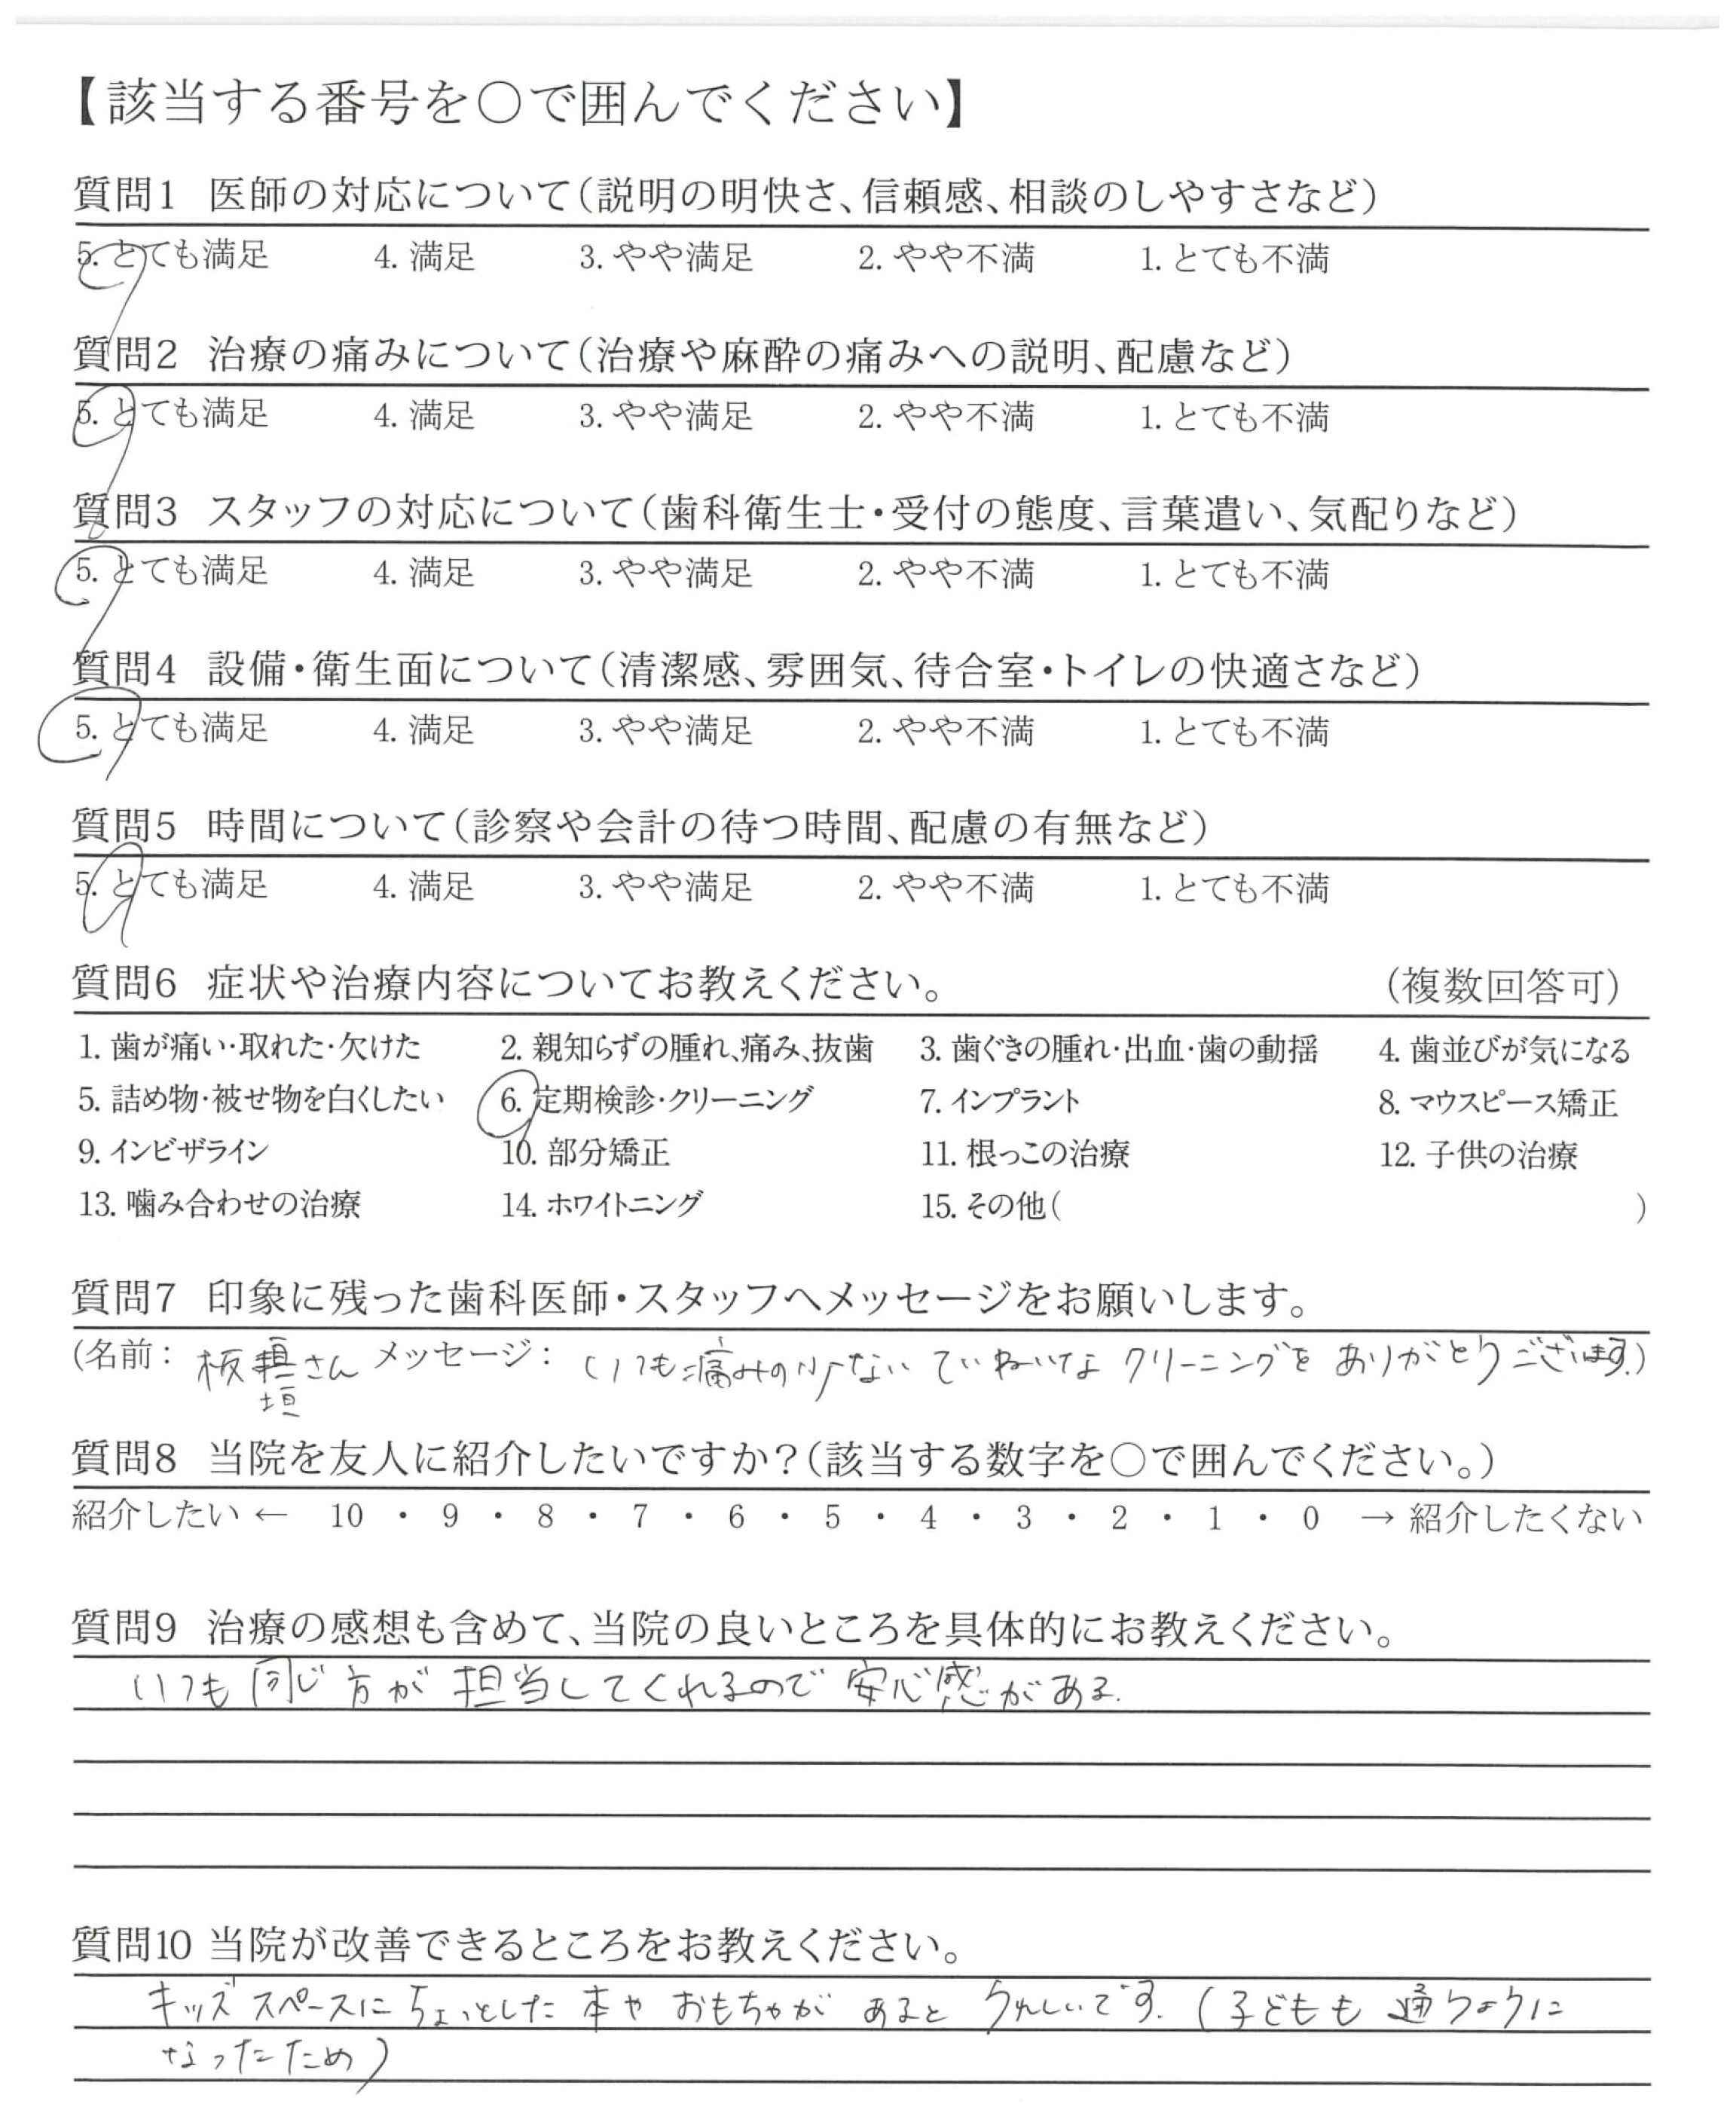 【該当する番号を○で囲んでください】
質問1 医師の対応について(説明の明快さ、信頼感、相談のしやすさなど)
5. とても満足 4. 満足 3. やや満足 2. やや不満 1. とても不満
質問2 治療の痛みについて(治療や麻酔の痛みへの説明、配慮など)
5. とても満足 4. 満足 3. やや満足 2. やや不満 1. とても不満
質問3 スタッフの対応について(歯科衛生士・受付の態度、言葉遣い、気配りなど)
5. とても満足 4. 満足 3. やや満足 2. やや不満 1. とても不満
質問4 設備・衛生面について(清潔感、雰囲気、待合室・トイレの快適さなど)
5. とても満足 4. 満足 3. やや満足 2. やや不満 1. とても不満
質問5 時間について(診察や会計の待つ時間、配慮の有無など)
5. とても満足 4. 満足 3. やや満足 2. やや不満 1. とても不満
質問6 症状や治療内容についてお教えください。 (複数回答可)
1. 歯が痛い・取れた・欠けた 2. 親知らずの腫れ、痛み、抜歯 3. 歯ぐきの腫れ・出血・歯の動揺 4. 歯並びが気になる
5. 詰め物・被せ物を白くしたい 6. 定期検診・クリーニング 7. インプラント 8. マウスピース矯正
9. インビザライン 10. 部分矯正 11. 根っこの治療 12. 子供の治療
13. 噛み合わせの治療 14. ホワイトニング 15. その他( )
質問7 印象に残った歯科医師・スタッフへメッセージをお願いします。
(名前: 板垣さん メッセージ: いつも痛みの少ないていねいなクリーニングをありがとうございます。)
垣
質問8 当院を友人に紹介したいですか?(該当する数字を○で囲んでください。)
紹介したい ← 10 ・ 9 ・ 8 ・ 7 ・ 6 ・ 5 ・ 4 ・ 3 ・ 2 ・ 1 ・ 0 → 紹介したくない
質問9 治療の感想も含めて、当院の良いところを具体的にお教えください。
いつも同じ方が担当してくれるので安心感がある.
質問10 当院が改善できるところをお教えください。
キッズスペースにちょっとした本やおもちゃがあるとうれしいです.(子どもも通うように
なったため)